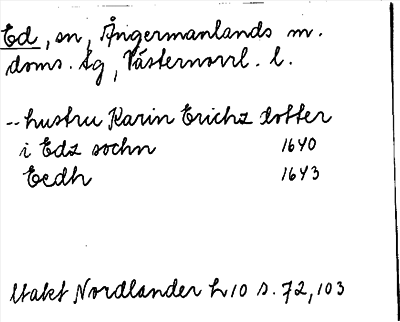 Ed, sn, Ångermanlands m.
doms. sg, Västernorrl. l.
-- hustru Karin Erichz dotter
i Edz sochn 1640
Eedh 1643
Utakt Nordlander h 10 s. 72, 103